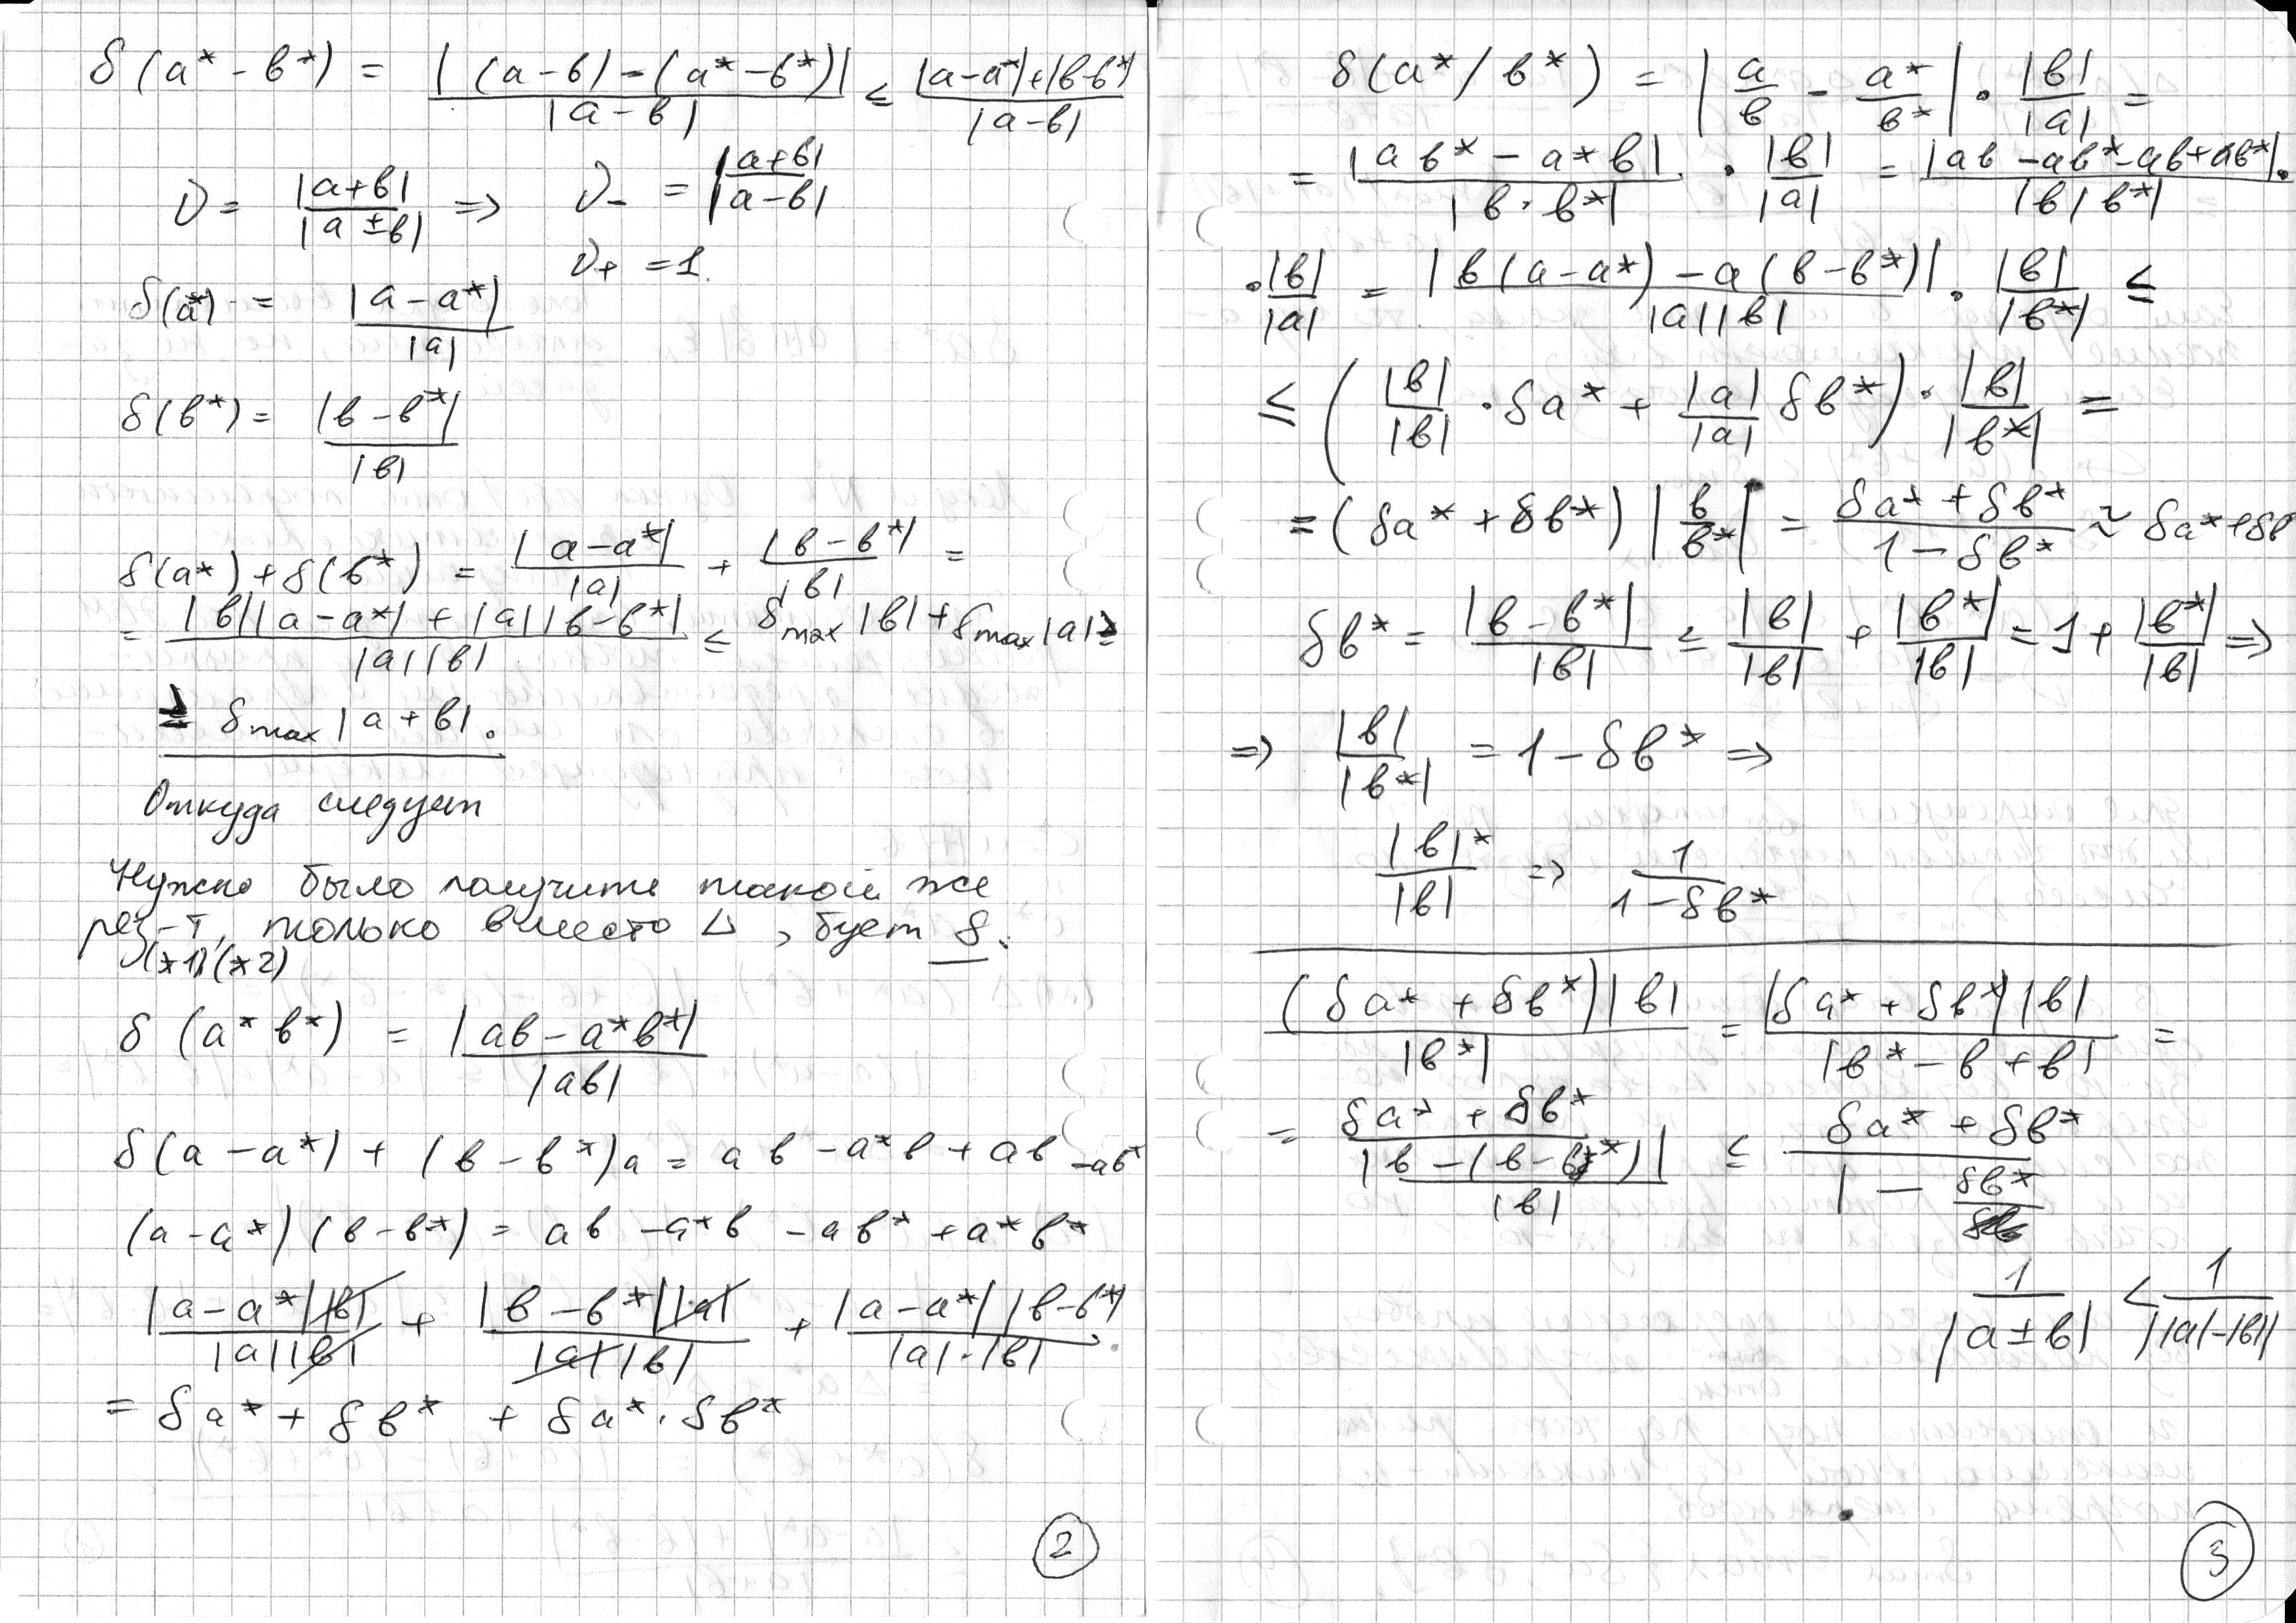 δ(a* - b*) = |(a-b) - (a* - b*)| / |a-b| ≤ (|a-a*| + |b-b*|) / |a-b|
ν = |a+b| / |a±b| ⇒ ν₋ = |a+b| / |a-b|
ν₊ = 1.
δ(a*) = |a-a*| / |a|
δ(b*) = |b-b*| / |b|
δ(a*) + δ(b*) = |a-a*| / |a| + |b-b*| / |b| =
= (|b||a-a*| + |a||b-b*|) / |a||b| ≤ δmax|b| + δmax|a| ≥
≥ δmax|a+b|.
Откуда следует
Нужно было получить такой же
рез-т, только вместо Δ, бует δ.
(*1) (*2)
δ(a* b*) = |ab - a*b*| / |ab|
δ(a-a*) + (b-b*)a = ab - a*b + ab - ab*
(a-a*)(b-b*) = ab - a*b - ab* + a*b*
|a-a*||b| / |a||b| + |b-b*||a| / |a||b| + |a-a*||b-b*| / |a|·|b|
= δa* + δb* + δa*·δb*
2
δ(a*/b*) = |a/b - a*/b*| · |b|/|a| =
= |ab* - a*b| / |b·b*| · |b|/|a| = |ab - ab* - ab + ab*| / |b|b*| ·
· |b|/|a| = |b(a-a*) - a(b-b*)| / |a||b| · |b|/|b*| ≤
≤ (|b|/|b| · δa* + |a|/|a| δb*) · |b|/|b*| =
= (δa* + δb*) |b/b*| = (δa* + δb*) / (1 - δb*) ≈ δa* + δb
δb* = |b-b*| / |b| ≤ |b|/|b| + |b*|/|b| = 1 + |b*|/|b| ⇒
⇒ |b|/|b*| = 1 - δb* ⇒
|b|*/|b| ⇒ 1 / (1 - δb*)
(δa* + δb*)|b| / |b*| = |δa* + δb*||b| / |b* - b + b| =
= (δa* + δb*) / (|b - (b-b*)| / |b|) ≤ (δa* + δb*) / (1 - δb*)
1 / |a±b| < 1 / ||a|-|b||
3